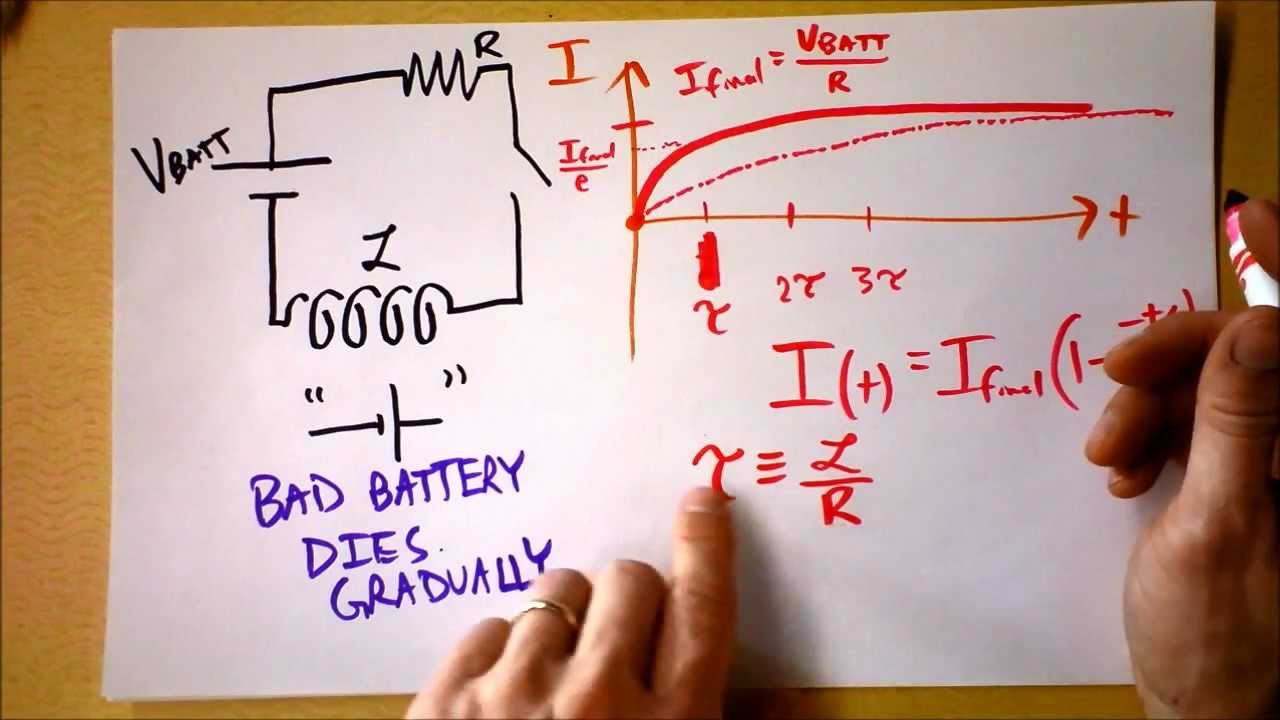 R
VBATT
L
“ ”
BAD BATTERY
DIES
GRADUALLY
I
Ifinal = VBATT / R
Ifinal / e
t
τ 2τ 3τ
I(t) = Ifinal (1-
τ ≡ L / R